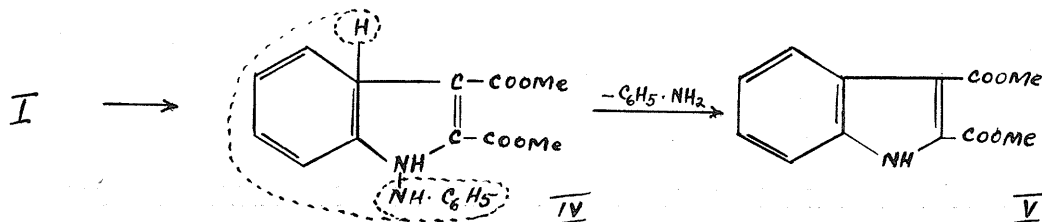 I
H
C — COOMe
C — COOMe
NH
NH · C6H5
IV
- C6H5 · NH2
COOMe
COOMe
NH
V